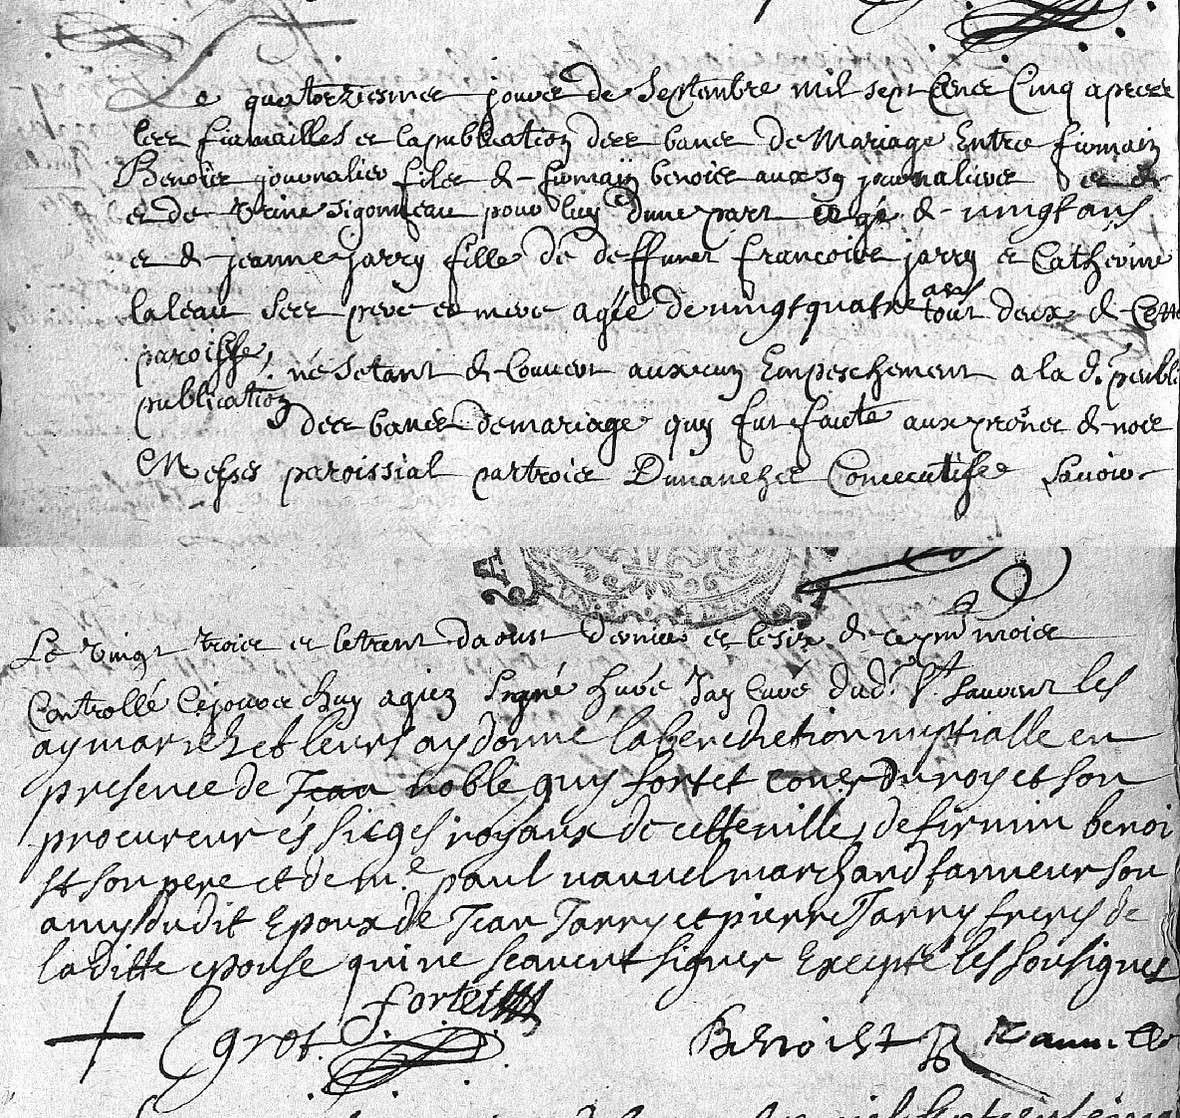 Le quatorziesmes jouer de Septembre mil sept Cens Cinq apres
les fiansailles et la publication des bancs de Mariage Entre firmain
Benoist journalier fils de firmain benoist aussy journalier et de
et de sigonneau pour luy d'une part agé de vingt ans
et de jeanne Jarry fille de deffunct francois jarry et Catherine
laleau ses pere et mere agée de vingt quatre ans tout deux de Cette
paroisse, ne s'etant de Couvert auxcun Empeschement a la d.e publi
publication
des bancs de mariage quy fut faite aux prônes de nos
Messes paroissial par trois Dimanches Consecutifs Sauoir
Le vingt trois et le trent d'aoust dernier et le six de ce pnt mois
Controllé Cejourd'huy a giez Signé huré Jay Curé dud. St. Sauveur les
ay mariez et leurs ay donné la benediction nuptialle en
presence de Jean noble guy fortet conser du roy et son
procureur és sieges royaux de cette ville, de firmin benoi
st son pere et de m.e paul nauuel marchand tanneur son
amy dudit Epoux de Jean Jarry et pierre Jarry freres de
laditte epouse qui ne scauent signer Excepté les soussignes
Egrot fortet Benoist